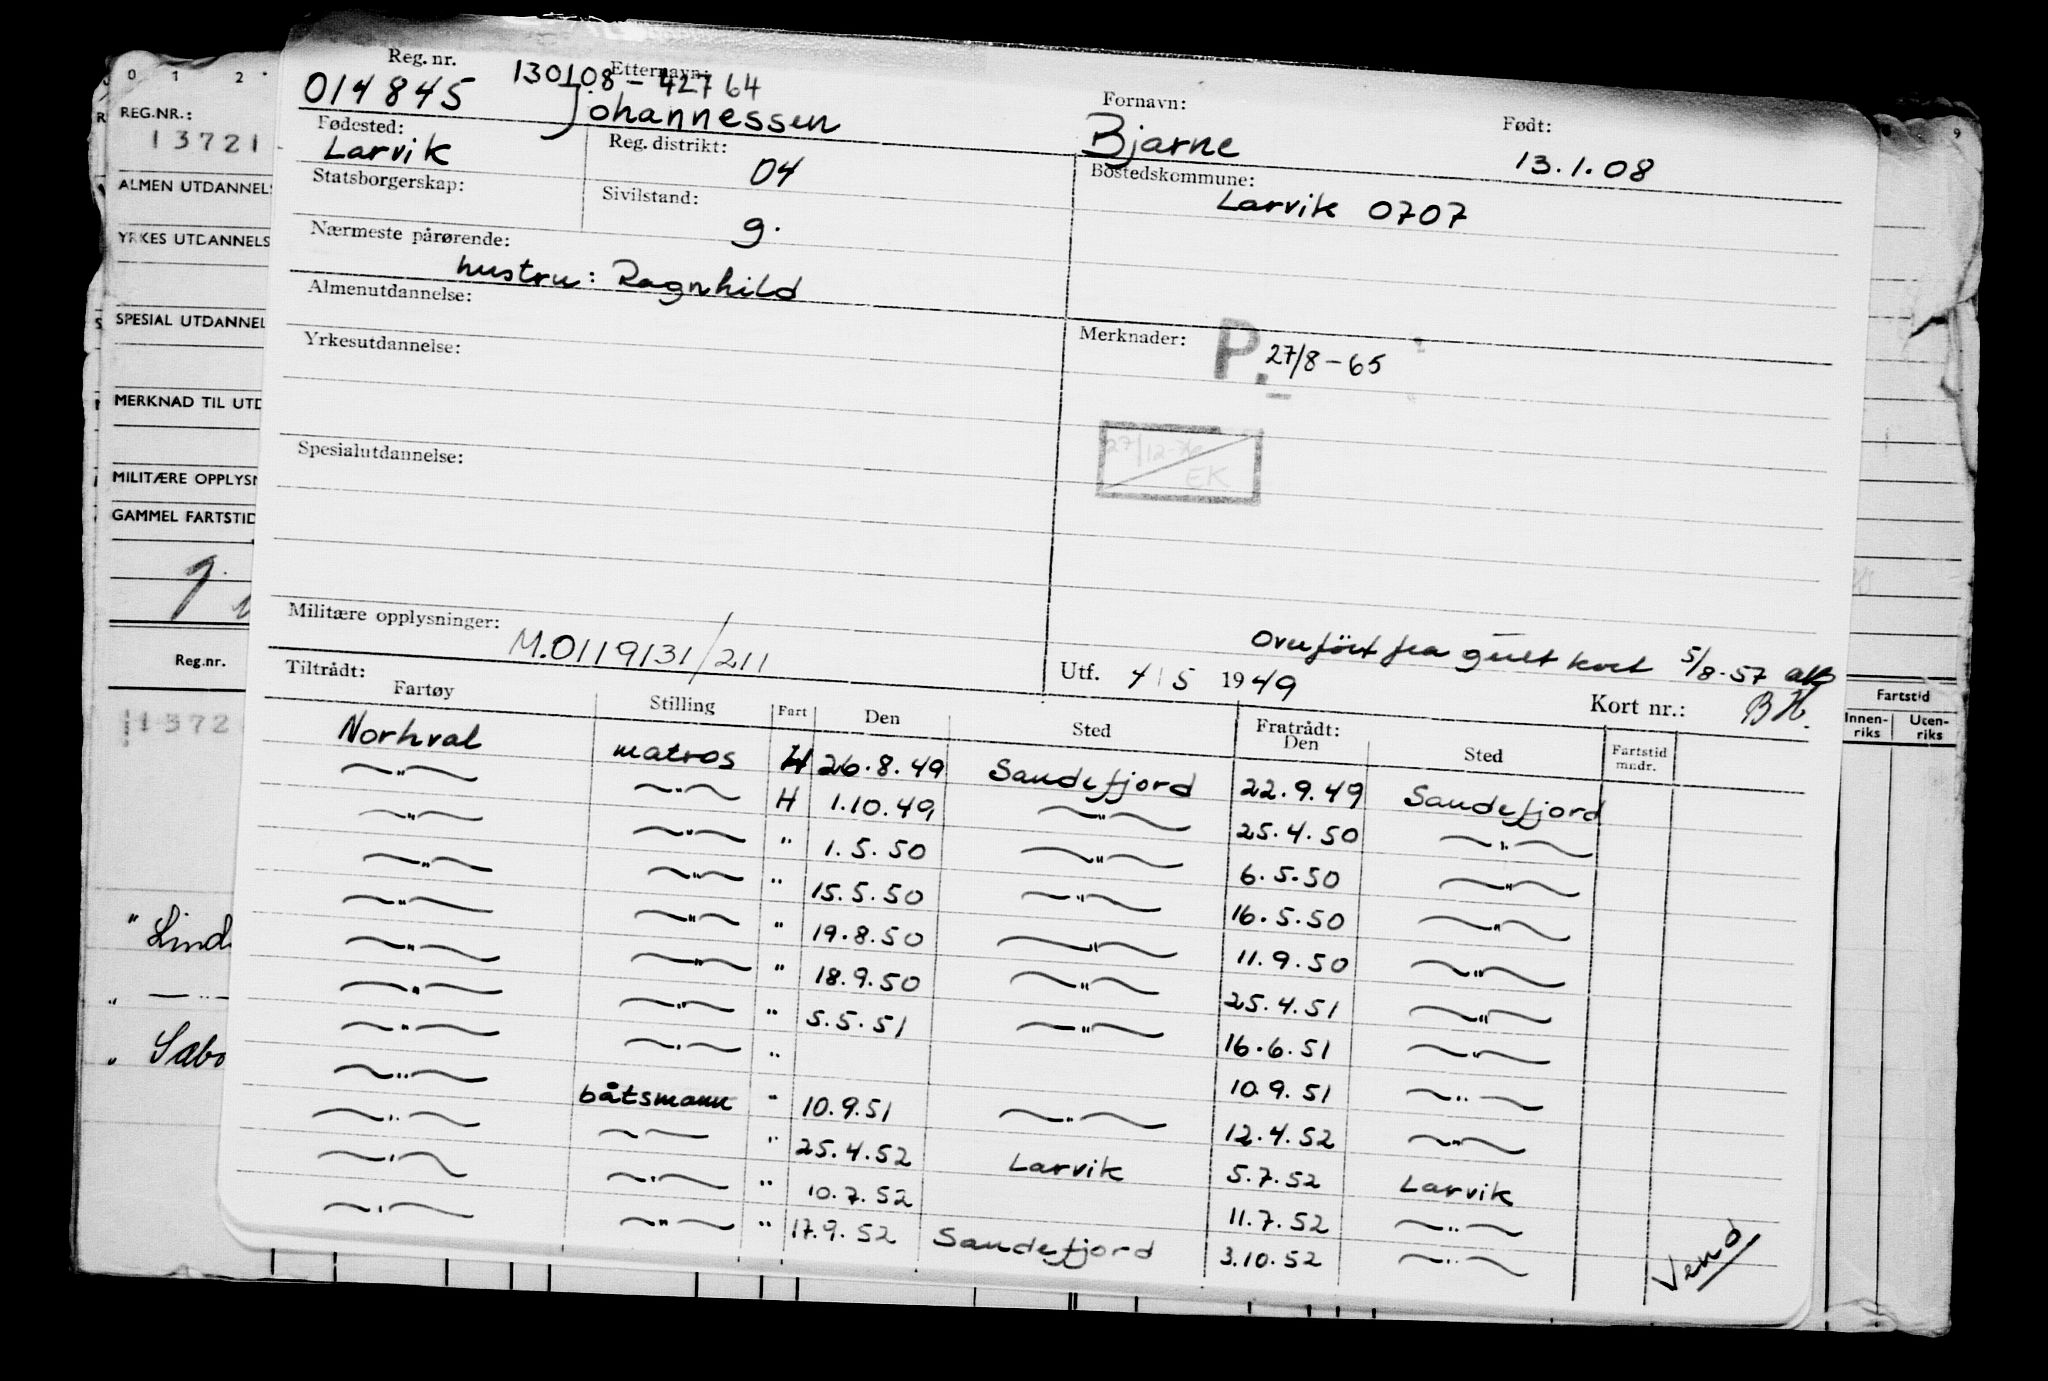 0 1 2 9
REG.NR.:
13721
ALMEN UTDANNELS
YRKES UTDANNELS
SPESIAL UTDANNEL
MERKNAD TIL UTD
MILITÆRE OPPLYSN
GAMMEL FARTSTID
g.
Reg.nr.
1372
" Lind
" — " —
" Sabo
Fartstid
Innen-riks Uten-riks
Reg. nr. Etternavn: Fornavn: Født:
014845 130108 – 42764 Johannessen Bjarne 13.1.08
Fødested: Reg. distrikt: Bostedskommune:
Larvik 04 Larvik 0707
Statsborgerskap: Sivilstand:
g.
Nærmeste pårørende:
hustru: Ragnhild
Almenutdannelse:
Yrkesutdannelse: Merknader: P. 27/8 – 65
27/12-76 EK
Spesialutdannelse:
Militære opplysninger: M.0119131/211
Overført fra gult kort 5/8-57
Utf. 4/5 1949 Kort nr.: BH.
Tiltrådt: Fratrådt:
Fartøy Stilling Fart Den Sted Den Sted Fartstid mndr.
Norhval matros H 26.8.49 Sandefjord 22.9.49 Sandefjord
—"— —"— H 1.10.49 —"— 25.4.50 —"—
—"— —"— " 1.5.50 —"— 6.5.50 —"—
—"— —"— " 15.5.50 —"— 16.5.50 —"—
—"— —"— " 19.8.50 —"— 11.9.50 —"—
—"— —"— " 18.9.50 —"— 25.4.51 —"—
—"— —"— " 5.5.51 —"— 16.6.51 —"—
—"— —"— " 10.9.51 —"—
—"— båtsmann " 10.9.51 —"— 12.4.52 —"—
—"— —"— " 25.4.52 Larvik 5.7.52 Larvik
—"— —"— " 10.7.52 11.7.52 —"—
—"— —"— " 17.9.52 Sandefjord 3.10.52 —"—
Vend